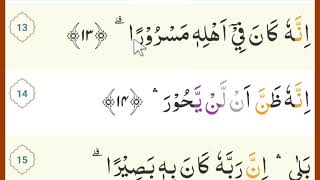 13 اِنَّهٗ كَانَ فِيْۤ اَهْلِهٖ مَسْرُوْرًا ؕ ﴿۱۳﴾
14 اِنَّهٗ ظَنَّ اَنْ لَّنْ يَّحُوْرَ ۛ ﴿۱۴﴾
15 بَلٰۤى ۛ اِنَّ رَبَّهٗ كَانَ بِهٖ بَصِيْرًا ؕ